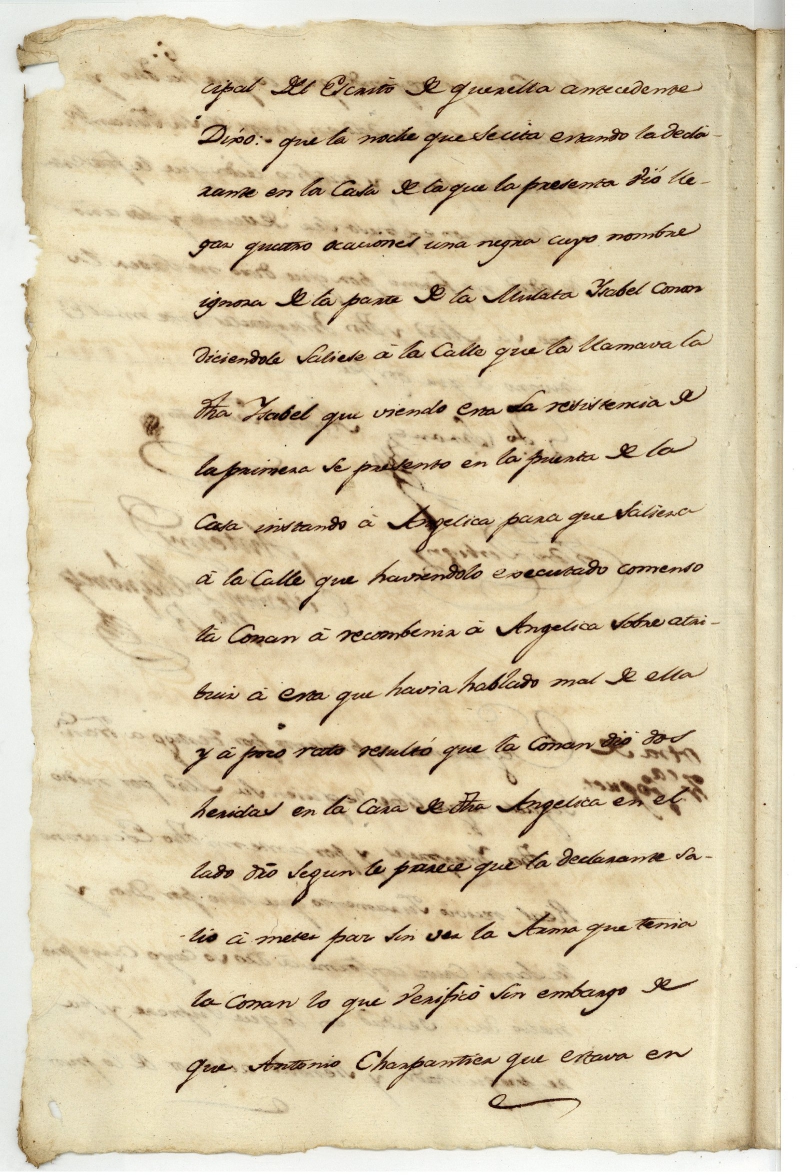 cipal del Escrito de querella antecedente
Dixo: que la noche que se cita estando la decla-
rante en la Casa de la que la presenta vió lle-
gar quatro ocaciones una negra cuyo nombre
ignora de la parte de la Mulata Ysabel Conan
diciendole saliese â la Calle que la llamava la
dha Ysabel que viendo esta la resistencia de
la primera se presento en la puerta de la
Casa instando â Angelica para que saliera
â la Calle que haviendolo executado comenso
la Conan â recombenir â Angelica sobre atri-
buir â esta que havia hablado mal de ella
y â poco rato resultó que la Conan dió dos
heridas en la Cara de dha Angelica en el
lado dro segun le parece que la declarante sa-
lio â meter paz sin ver la Arma que tenia
la Conan lo que verificó sin embargo de
que Antonio Charpantier que estava en